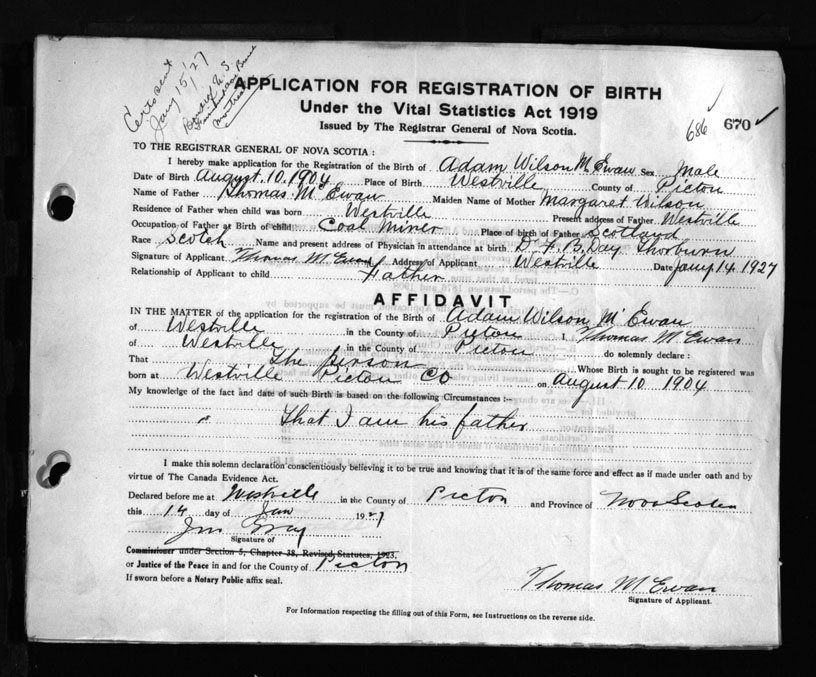 Certs sent
Jany 15/27
APPLICATION FOR REGISTRATION OF BIRTH
Under the Vital Statistics Act 1919
Issued by The Registrar General of Nova Scotia.
686 670
TO THE REGISTRAR GENERAL OF NOVA SCOTIA :
I hereby make application for the Registration of the Birth of Adam Wilson McEwan Sex Male
Date of Birth August 10. 1904 Place of Birth Westville County of Picton
Name of Father Thomas McEwan Maiden Name of Mother Margaret Wilson
Residence of Father when child was born Westville Present address of Father Westville
Occupation of Father at Birth of child Coal Miner Place of birth of Father Scotland
Race Scotch Name and present address of Physician in attendance at birth Dr F. B. Day Thorburn
Signature of Applicant Thomas McEwan Address of Applicant Westville Date Jany 14. 1927
Relationship of Applicant to child Father
AFFIDAVIT
IN THE MATTER of the application for the registration of the Birth of Adam Wilson McEwan
of Westville in the County of Picton I, Thomas McEwan
of Westville in the County of Picton do solemnly declare :
That The person Whose Birth is sought to be registered was
born at Westville Picton Co on August 10 1904
My knowledge of the fact and date of such Birth is based on the following Circumstances :—
That I am his father
I make this solemn declaration conscientiously believing it to be true and knowing that it is of the same force and effect as if made under oath and by
virtue of The Canada Evidence Act.
Declared before me at Westville in the County of Picton and Province of Nova Scotia
this 14 day of Jan 1927
Jm Gray
Signature of
Commissioner under Section 5, Chapter 38, Revised Statutes, 1923,
or Justice of the Peace in and for the County of Picton
If sworn before a Notary Public affix seal.
Thomas McEwan
Signature of Applicant.
For Information respecting the filling out of this Form, see Instructions on the reverse side.